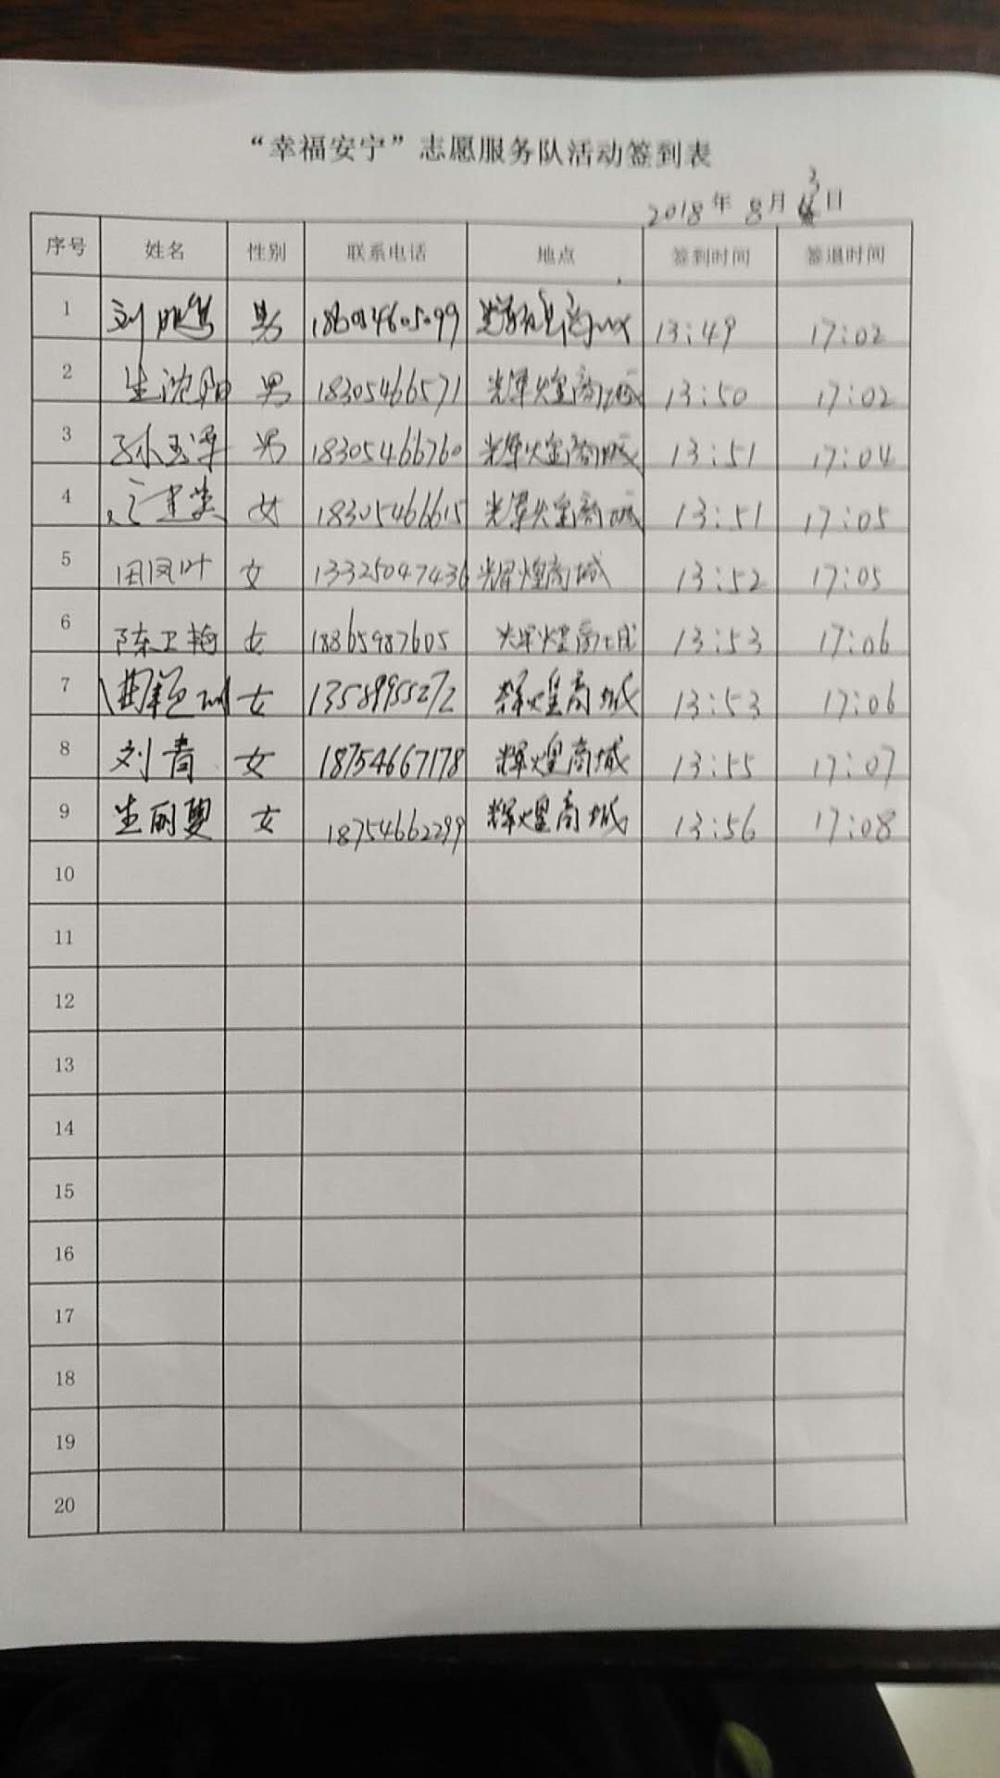 “幸福安宁”志愿服务队活动签到表
2018年 8月 3日
序号 姓名 性别 联系电话 地点 签到时间 签退时间
1 刘 男 13:49 17:02
2 生沈阳 男 18305466571 光辉煌商城 13:50 17:02
3 孙玉泽 男 18305466760 光辉煌商城 13:51 17:04
4 女 18305466615 光辉煌商城 13:51 17:05
5 田凤叶 女 13325047436 光辉煌商城 13:52 17:05
6 陈卫梅 女 18865987605 光辉煌商城 13:53 17:06
7 女 13589955272 辉煌商城 13:53 17:06
8 刘青 女 18754667178 辉煌商城 13:55 17:07
9 生丽夏 女 18754662299 辉煌商城 13:56 17:08
10
11
12
13
14
15
16
17
18
19
20